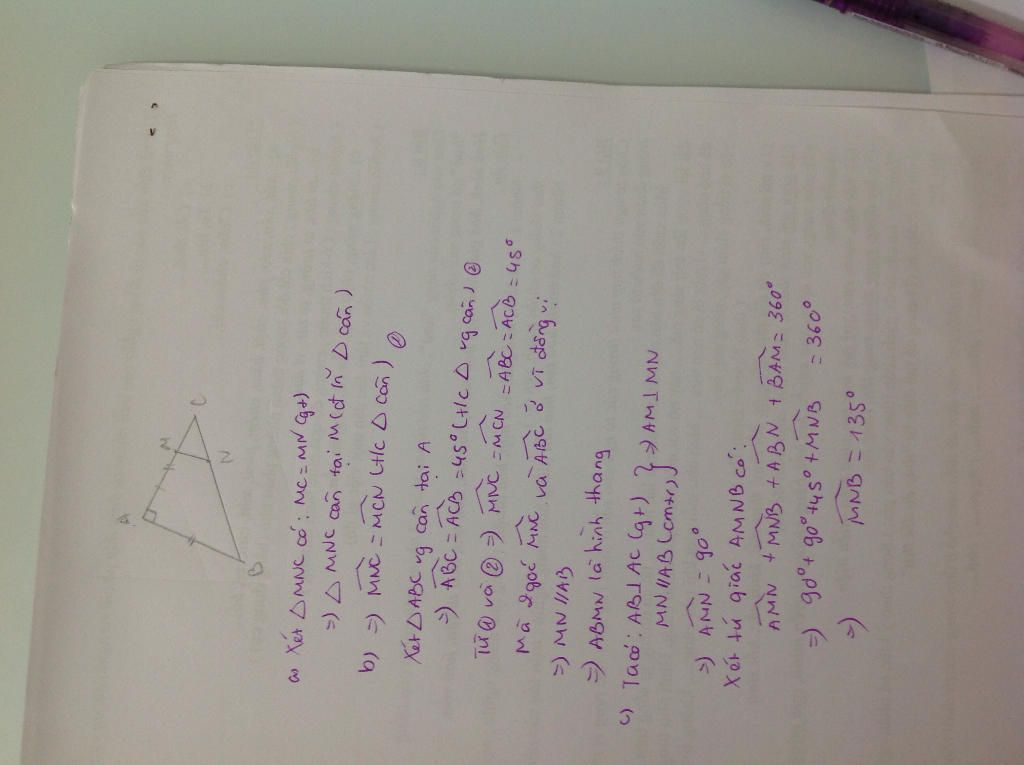 A
M
C
B
N
a) Xét △MNC có: MC = MN (gt)
=) △ MNC cân tại M (đ/n △ cân)
b) =) MNC = MCN (t/c △ cân) ①
Xét △ABC vg cân tại A
=) ABC = ACB = 45° (t/c △ vg cân) ②
Từ ① và ② =) MNC = MCN = ABC = ACB = 45°
Mà 2 góc MNC và ABC ở vị đồng vị
=) MN // AB
=) ABMN là hình thang
c) Ta có: AB⊥AC (gt) } =) AM⊥MN
MN // AB (cmtr)
=) AMN = 90°
Xét tứ giác AMNB có:
AMN + MNB + ABN + BAM = 360°
=) 90° + 90° + 45° + MNB = 360°
=) MNB = 135°